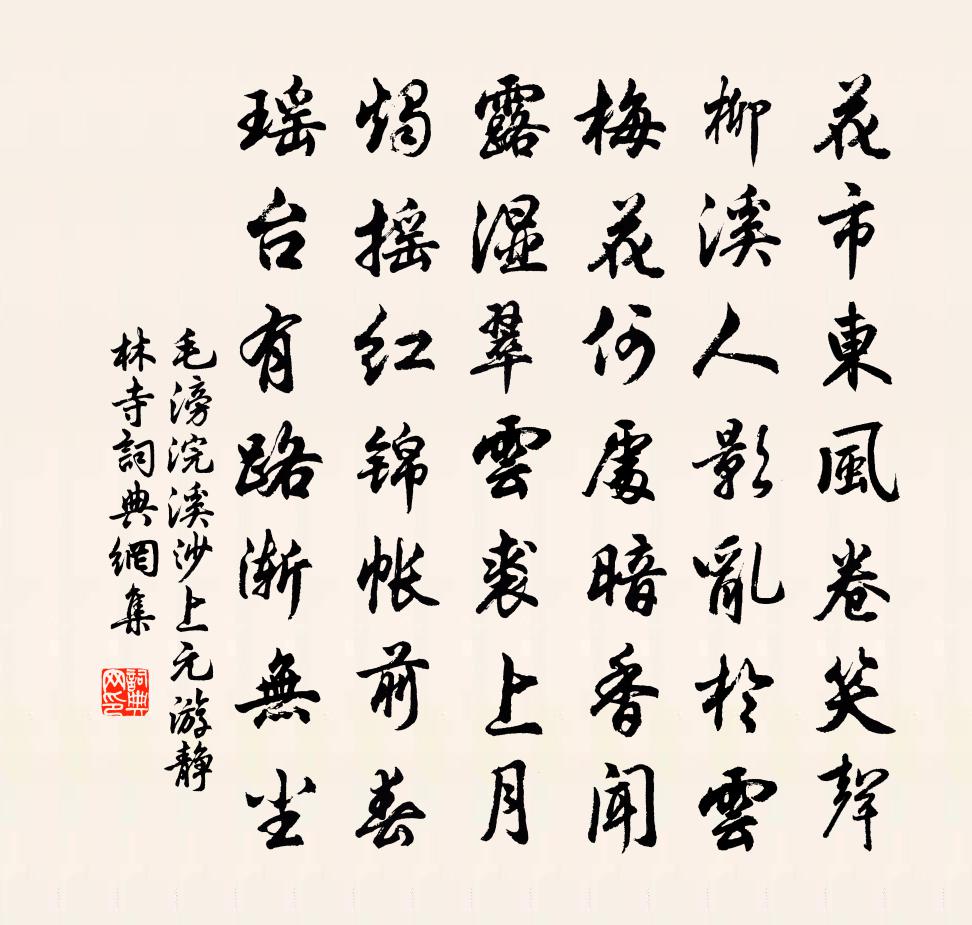 花市東風卷笑聲
柳溪人影亂於雲
梅花何處暗香聞
露湿翠雲裘上月
燭摇红锦帐前春
瑶台有路渐無尘
毛滂浣溪沙上元游静
林寺詞典網集
詞典网印